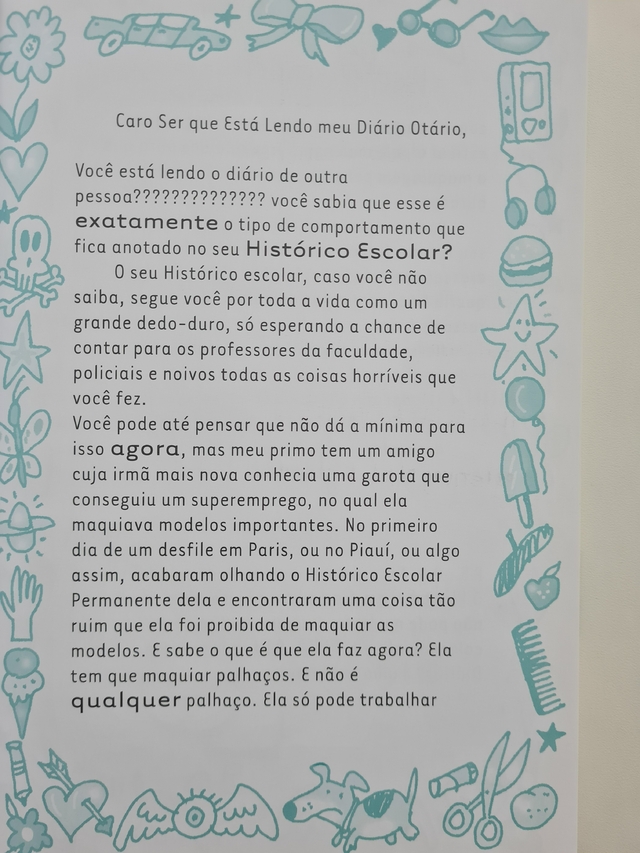 Caro Ser que Está Lendo meu Diário Otário,
Você está lendo o diário de outra
pessoa?????????????? você sabia que esse é
exatamente o tipo de comportamento que
fica anotado no seu Histórico Escolar?
O seu Histórico escolar, caso você não
saiba, segue você por toda a vida como um
grande dedo-duro, só esperando a chance de
contar para os professores da faculdade,
policiais e noivos todas as coisas horríveis que
você fez.
Você pode até pensar que não dá a mínima para
isso agora, mas meu primo tem um amigo
cuja irmã mais nova conhecia uma garota que
conseguiu um superemprego, no qual ela
maquiava modelos importantes. No primeiro
dia de um desfile em Paris, ou no Piauí, ou algo
assim, acabaram olhando o Histórico Escolar
Permanente dela e encontraram uma coisa tão
ruim que ela foi proibida de maquiar as
modelos. E sabe o que é que ela faz agora? Ela
tem que maquiar palhaços. E não é
qualquer palhaço. Ela só pode trabalhar